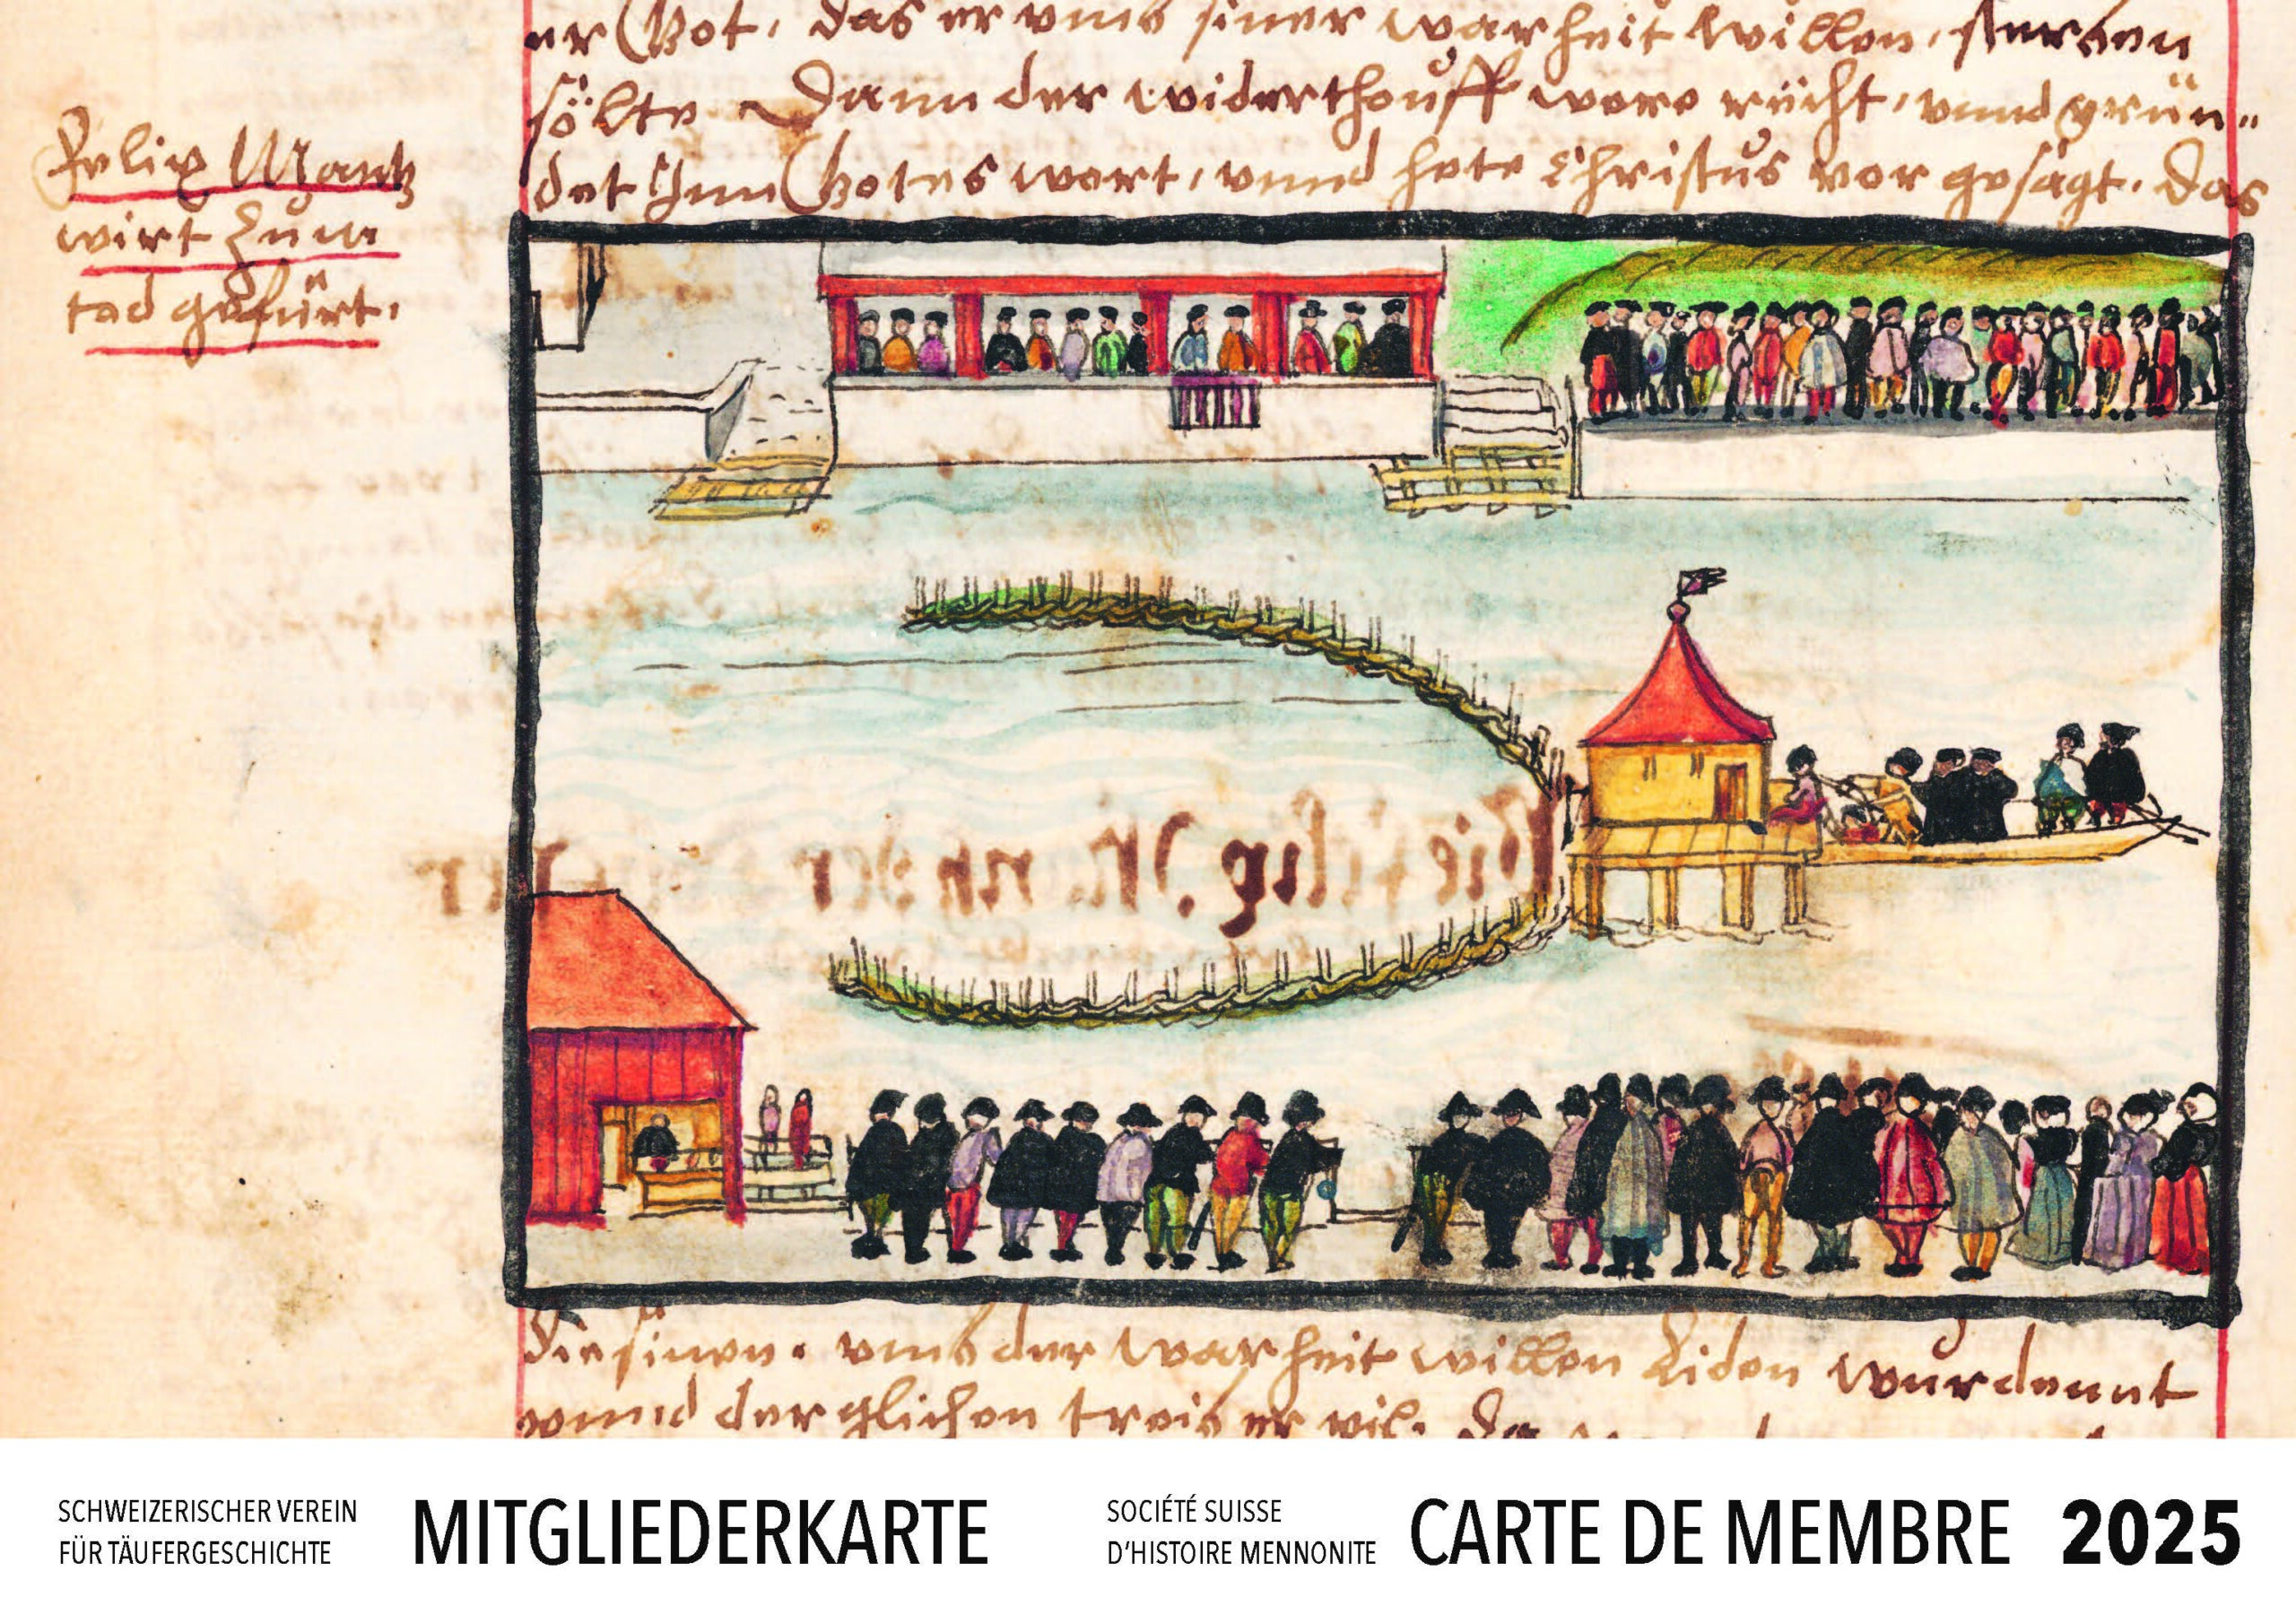 er Got, das er vmb siner warheit willen, sterben
sölte Dann der widerthouff were rächt, vnnd grün„
det Jnn Gotes wort, vnnd hete Christus vor gesagt, das
Felix Mantz
wirt zum
tod gefürt.
die sinen, vmb der warheit willen Liden wurdennt
vnnd der glichen treib er vil.
SCHWEIZERISCHER VEREIN
FÜR TÄUFERGESCHICHTE
MITGLIEDERKARTE
SOCIÉTÉ SUISSE
D'HISTOIRE MENNONITE
CARTE DE MEMBRE 2025